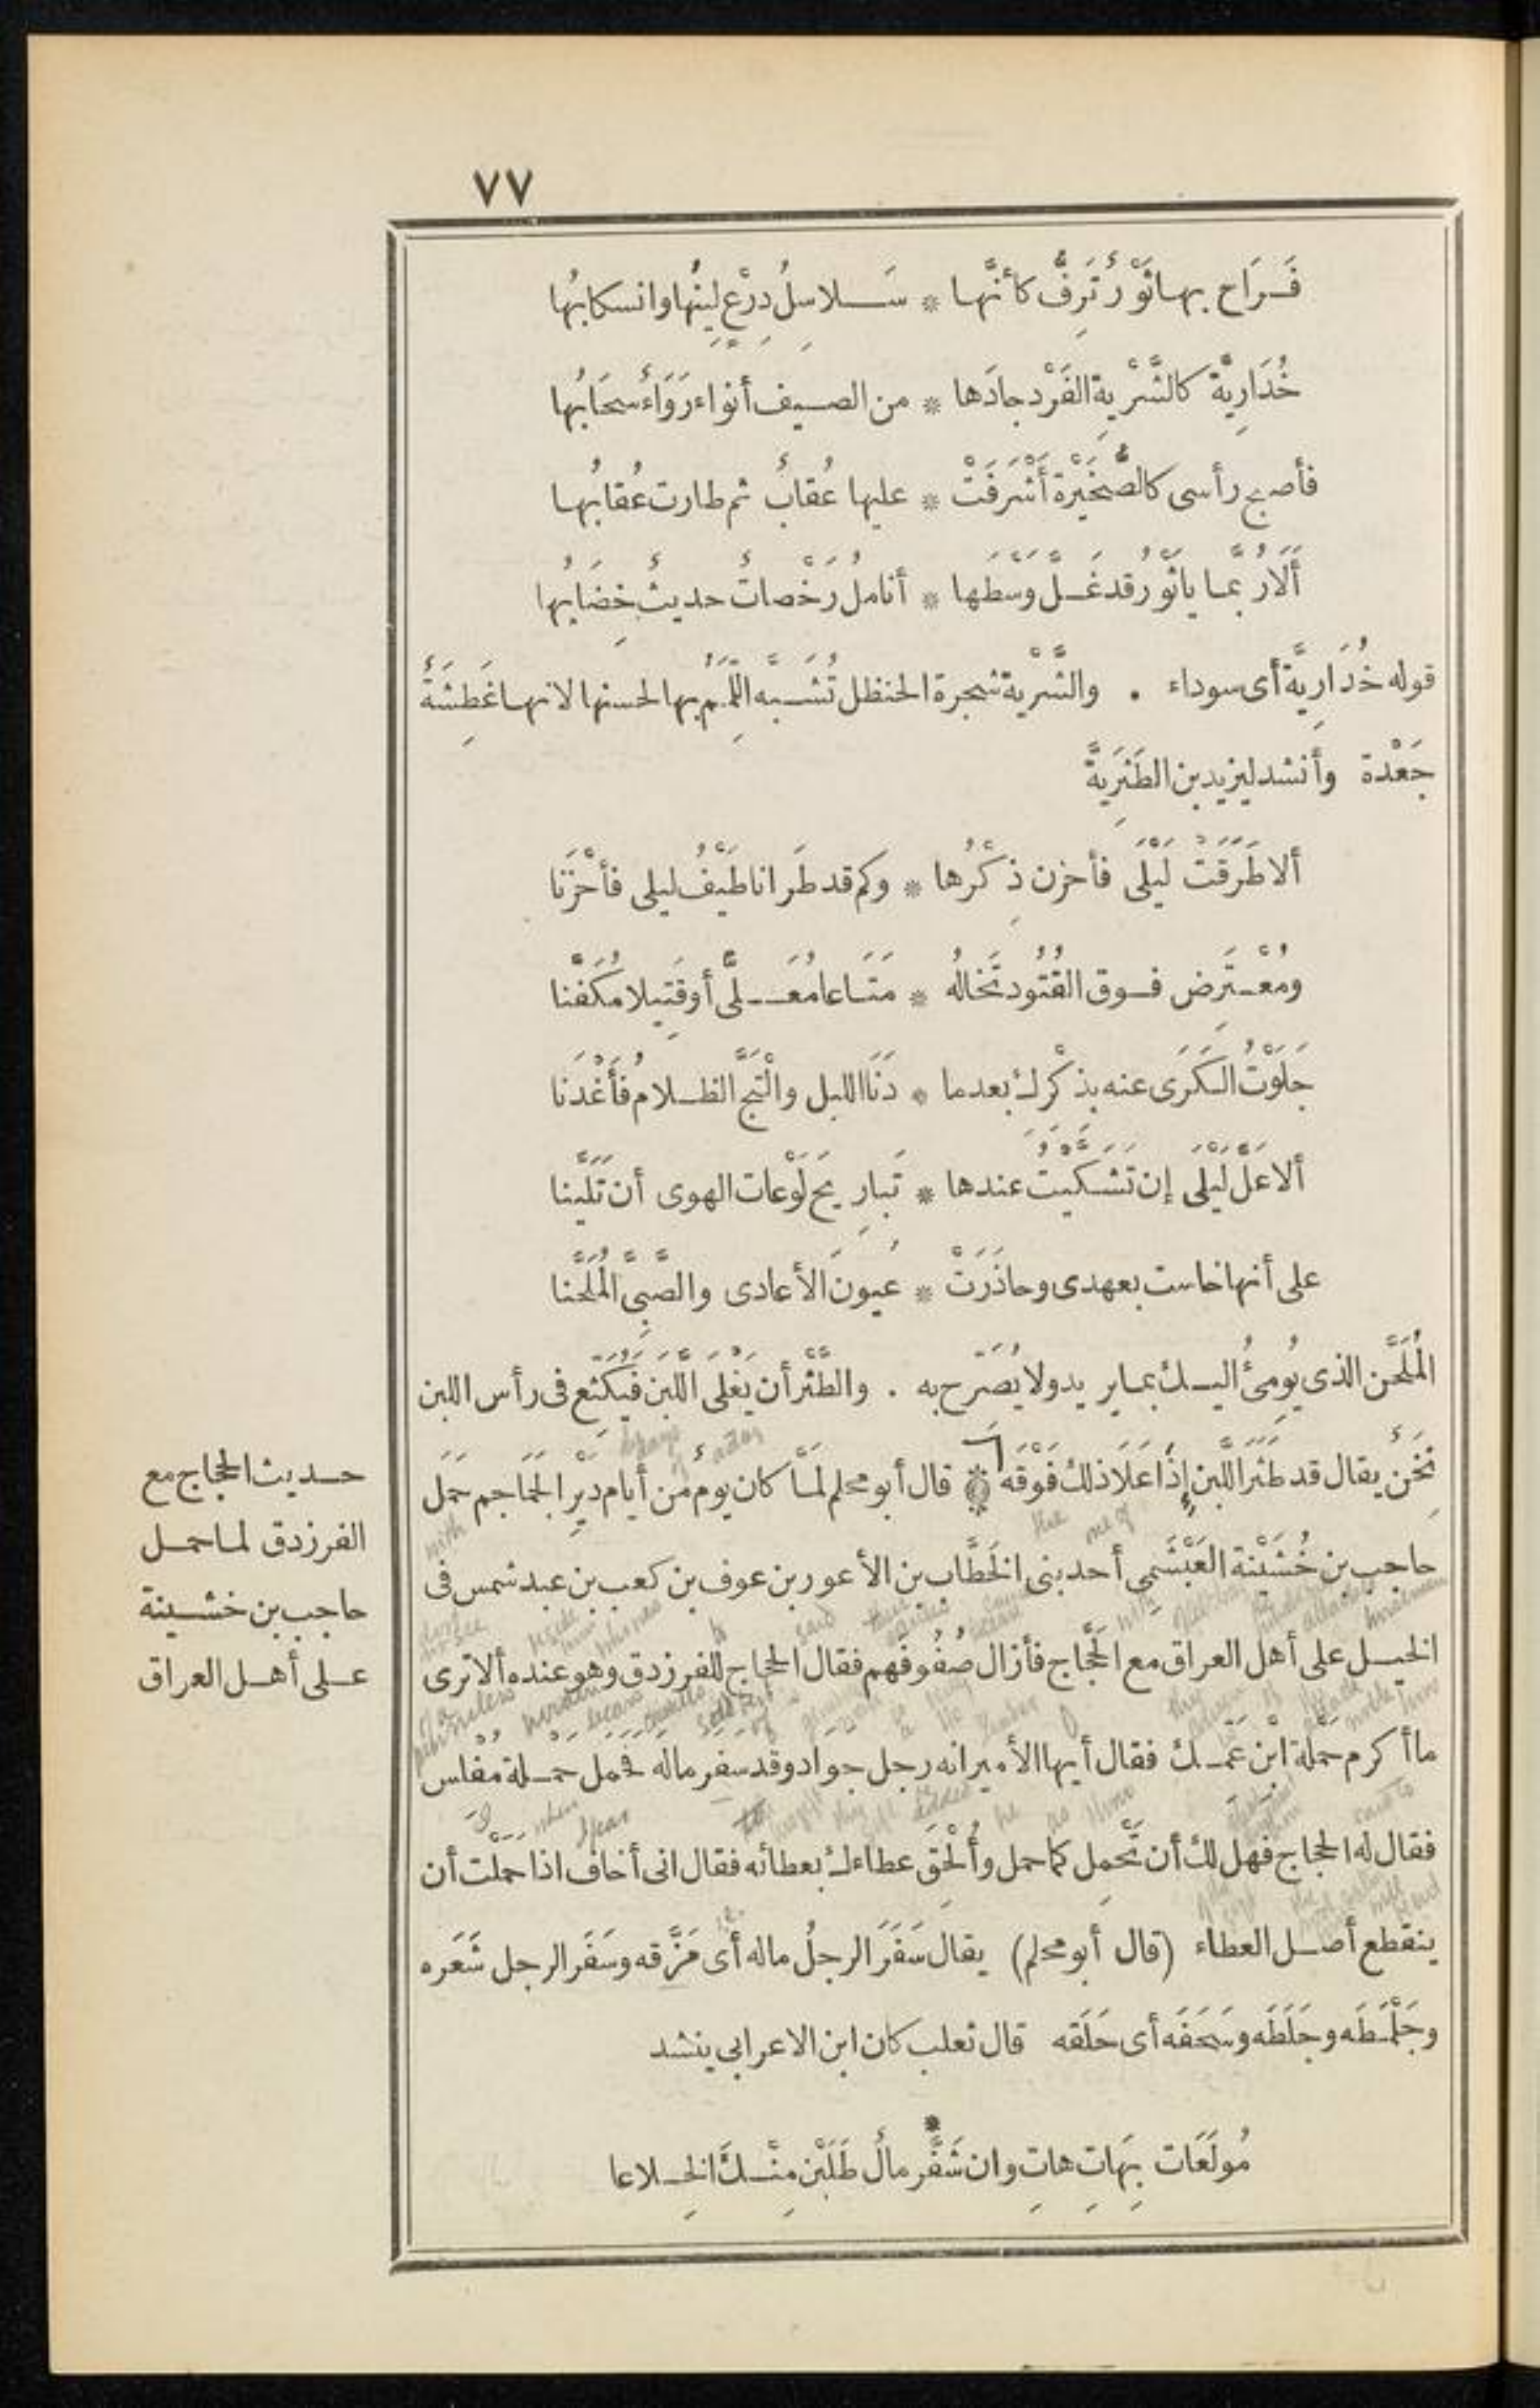 ٧٧
فَرَاح بها ثَوْرٌ تَرِفُّ كأنّها * سَلاسِلُ دِرْعٍ لِينُها وانسكابُها
خُدَارِيّة كالشَّرْيِة الفَرْد جادَها * من الصيف أنواء رَوَاءٌ سحَابُها
فأصبح رأسى كالصُّخَيْرة أَشْرَفَتْ * عليها عُقابٌ ثم طارت عُقابُها
أَلَا رُبَّما يا ثَوْرُ قد غَلَّ وَسْطَها * أناملُ رَخْصاتٌ حديثٌ خِضَابُها
قوله خُدَارِيّة أى سوداء . والشَّرْية شجرة الحنظل تُشَبه اللِّمَم بها لحسنها لانها غَطِشَةٌ
جَعْدة وأنشد ليزيد بن الطَثْرِيَّة
ألا طَرَقَتْ لَيْلَى فأحزن ذِكْرُها * وكم قد طَرَانا طَيْفُ ليلى فأحْزَنا
ومُعْتَرِض فوق القُتُود تَخالُه * مَتَاعا مُعَلًّى أو قَتِيلا مُكَفَّنا
جَلَوْتُ الكَرَى عنه بذكْرِك بعدما * دَنَا الليل والْتَجَّ الظلامُ فأَغْدَنَا
ألا عَلَّ لَيْلَى إن تَشَكَّيتُ عندها * تَبارِيحَ لَوْعات الهوى أن تَلَيَّنا
على أنها خاست بعهدى وحاذَرَتْ * عُيونَ الأعادى والصَّبِىَّ المُلَحَّنا
المُلَحَّن الذى يُومِئُ اليك بما يريد ولا يُصَرّح به . والطَّثْر أن يَغْلى اللَّبَن فيَكْثَع فى رأس اللبن
نَخَن يقال قد طَثَرَ اللَّبن إذا عَلَا ذلك فَوْقَه * قال أبو محلم لمَّا كان يوم من أيام دَيْرِ الجَمَاجم حَمَل
حاجب بن خُشَيْنة العَبْشَمِى أحد بنى الخَطَّاب بن الأعور بن عوف بن كعب بن عبد شمس فى
الخيل على أهل العراق مع الحَجَّاج فأزال صُفُوفَهم فقال الحجاج للفرزدق وهو عنده ألا ترى
ما أكرم حَمْلَة ابْنَ عَمِّك فقال أيها الأمير انه رجل جَوَاد وقد سَفَر مالَه فَحَمل حَمْلة مُفْلس
فقال له الحجاج فهل لك أن تَحْمِل كما حمل وأُلْحِقَ عطاءك بعطائه فقال انى أخاف اذا حملْت أن
ينقطع أصل العطاء (قال أبو محلم) يقال سَفَرَ الرجلُ ماله أى مَزَّقه وسَفَر الرجل شَعَره
وجَلْمَطَه وجَلَطَه وسَحَفَه أى حَلَقه قال ثعلب كان ابن الاعرابى ينشد
مُولَعَات بِهاتِ هاتِ وان شَفَّر * مالٌ طَلَبْن مِنْك الخِلاعا
حديث الحجاج مع
الفرزدق لما حمل
حاجب بن خشينة
على أهل العراق